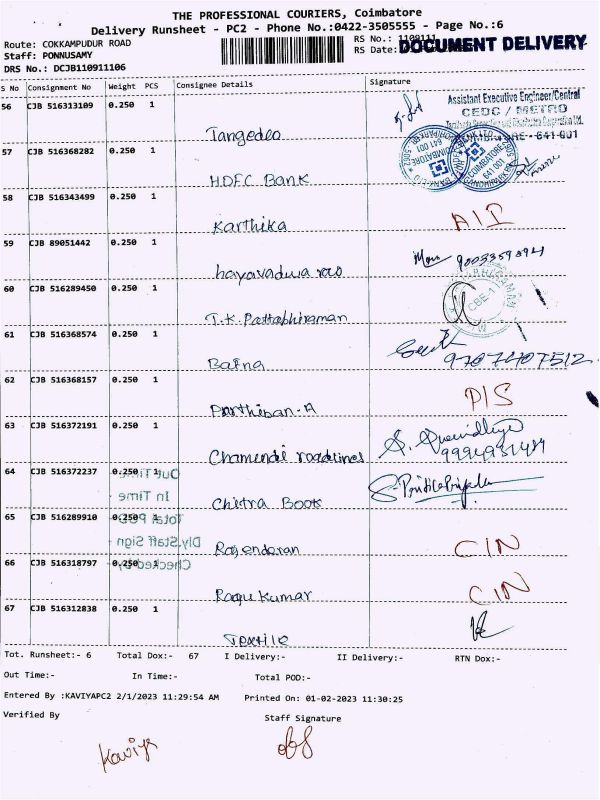 THE PROFESSIONAL COURIERS, Coimbatore
Delivery Runsheet - PC2 - Phone No.:0422-3505555 - Page No.:6
Route: COKKAMPUDUR ROAD RS No.: 1109111
Staff: PONNUSAMY RS Date: DOCUMENT DELIVERY
DRS No.: DCJB110911106
S No Consignment No Weight PCS Consignee Details Signature
56 CJB 516313109 0.250 1 Tangedco
Assistant Executive Engineer/Central
CEDC / METRO
COIMBATORE - 641 001
57 CJB 516368282 0.250 1 HDFC Bank
58 CJB 516343499 0.250 1 Karthika AII
59 CJB 89051442 0.250 1 hayavadwa rao
60 CJB 516289450 0.250 1 T.K. Pattabhiraman
CBE-1
61 CJB 516368574 0.250 1 Bafna 9787407512
62 CJB 516368157 0.250 1 Parthiban-A PIS
63 CJB 516372191 0.250 1 Chamundi roadlines
64 CJB 516372237 0.250 1 Chitra Book
65 CJB 516289910 0.250 Rajendaran CIN
66 CJB 516318797 0.250 Ragu kumar CIN
67 CJB 516312838 0.250 1 Textile
Out Time:-
In Time -
Total POD -
Dly.Staff.Sign -
Checked by
Tot. Runsheet:- 6 Total Dox:- 67 I Delivery:- II Delivery:- RTN Dox:-
Out Time:- In Time:- Total POD:-
Entered By :KAVIYAPC2 2/1/2023 11:29:54 AM Printed On: 01-02-2023 11:30:25
Verified By Staff Signature
Kaviya